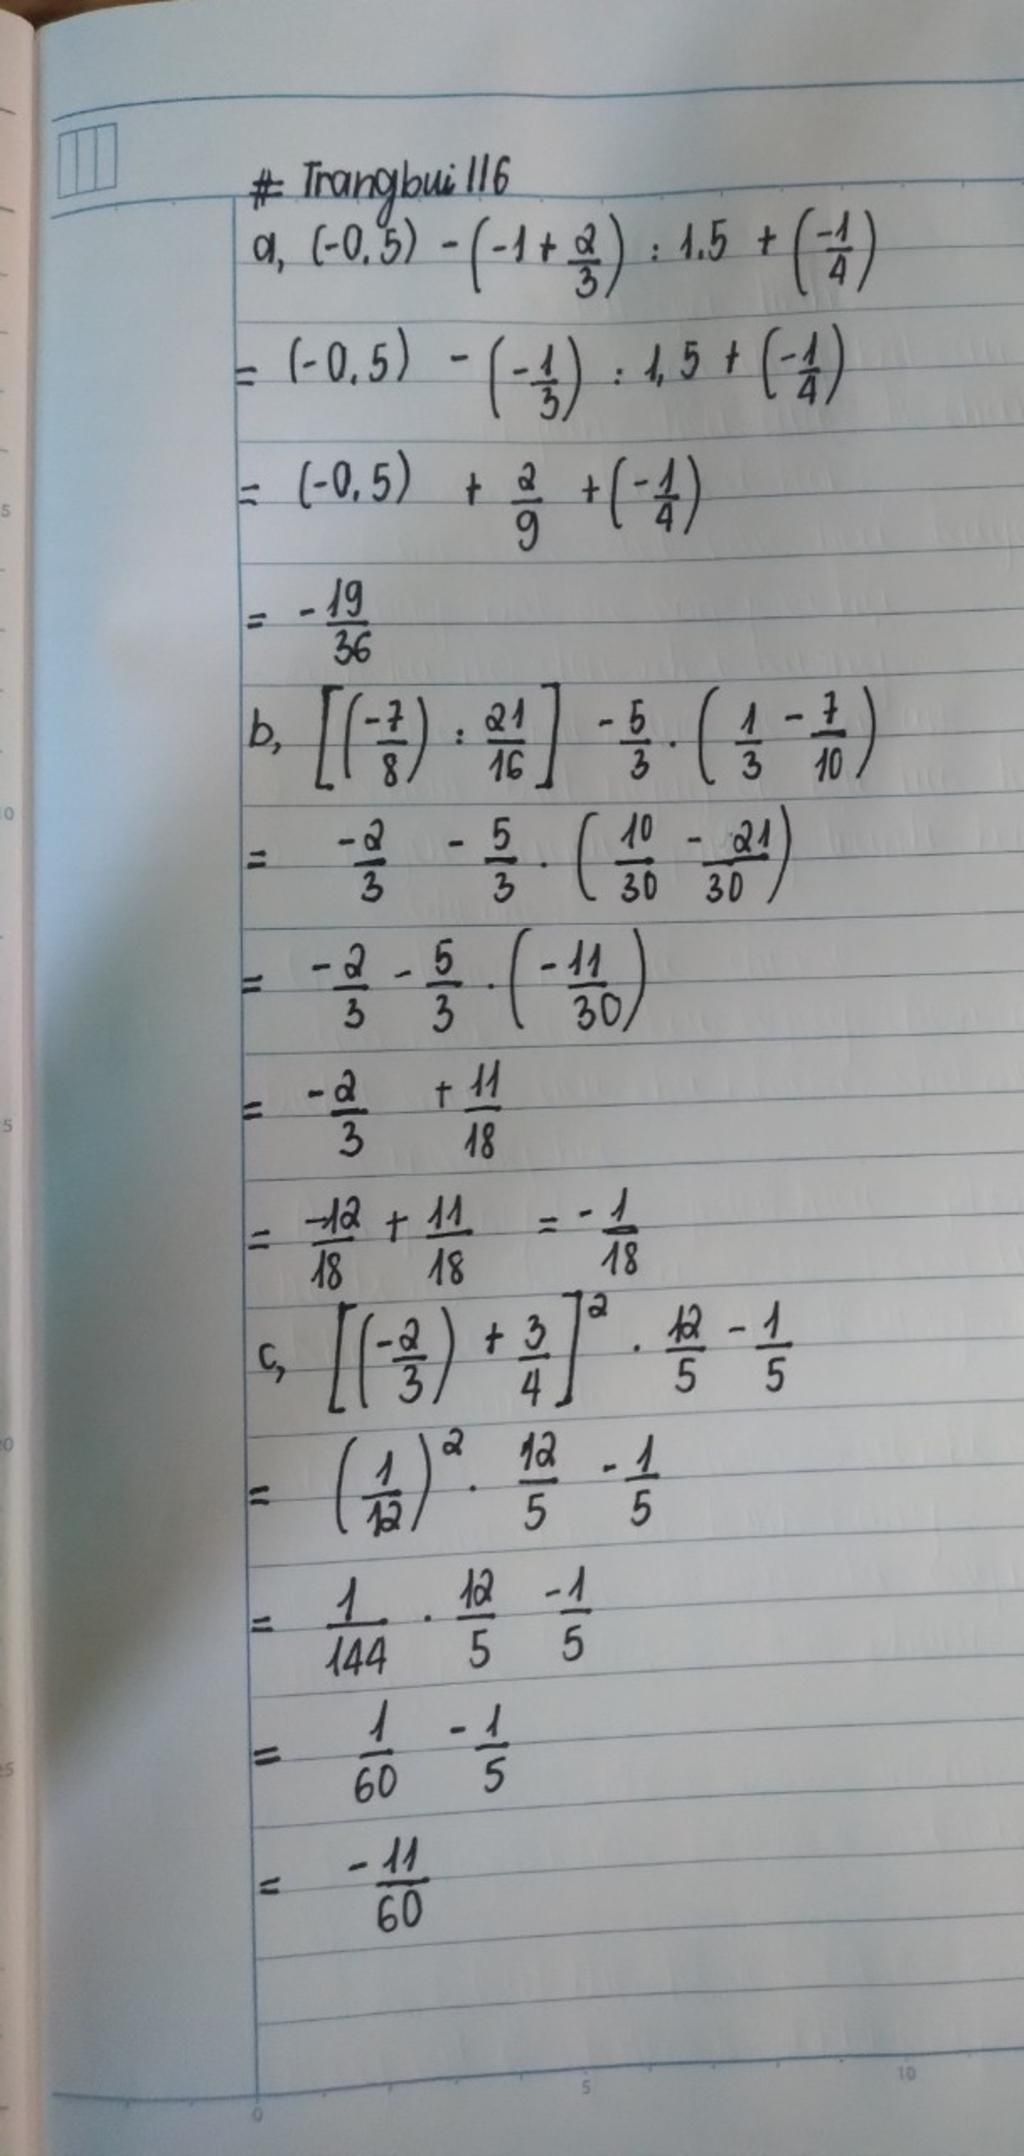 # Trangbui 116
a, (-0,5) - (-1 + 2/3) : 1,5 + (-1/4)
= (-0,5) - (-1/3) : 1,5 + (-1/4)
= (-0,5) + 2/9 + (-1/4)
= -19/36
b, [(-7/8) : 21/16] - 5/3 . (1/3 - 7/10)
= -2/3 - 5/3 . (10/30 - 21/30)
= -2/3 - 5/3 . (-11/30)
= -2/3 + 11/18
= -12/18 + 11/18 = -1/18
c, [(-2/3) + 3/4]² . 12/5 - 1/5
= (1/12)² . 12/5 - 1/5
= 1/144 . 12/5 - 1/5
= 1/60 - 1/5
= -11/60
0 5 10